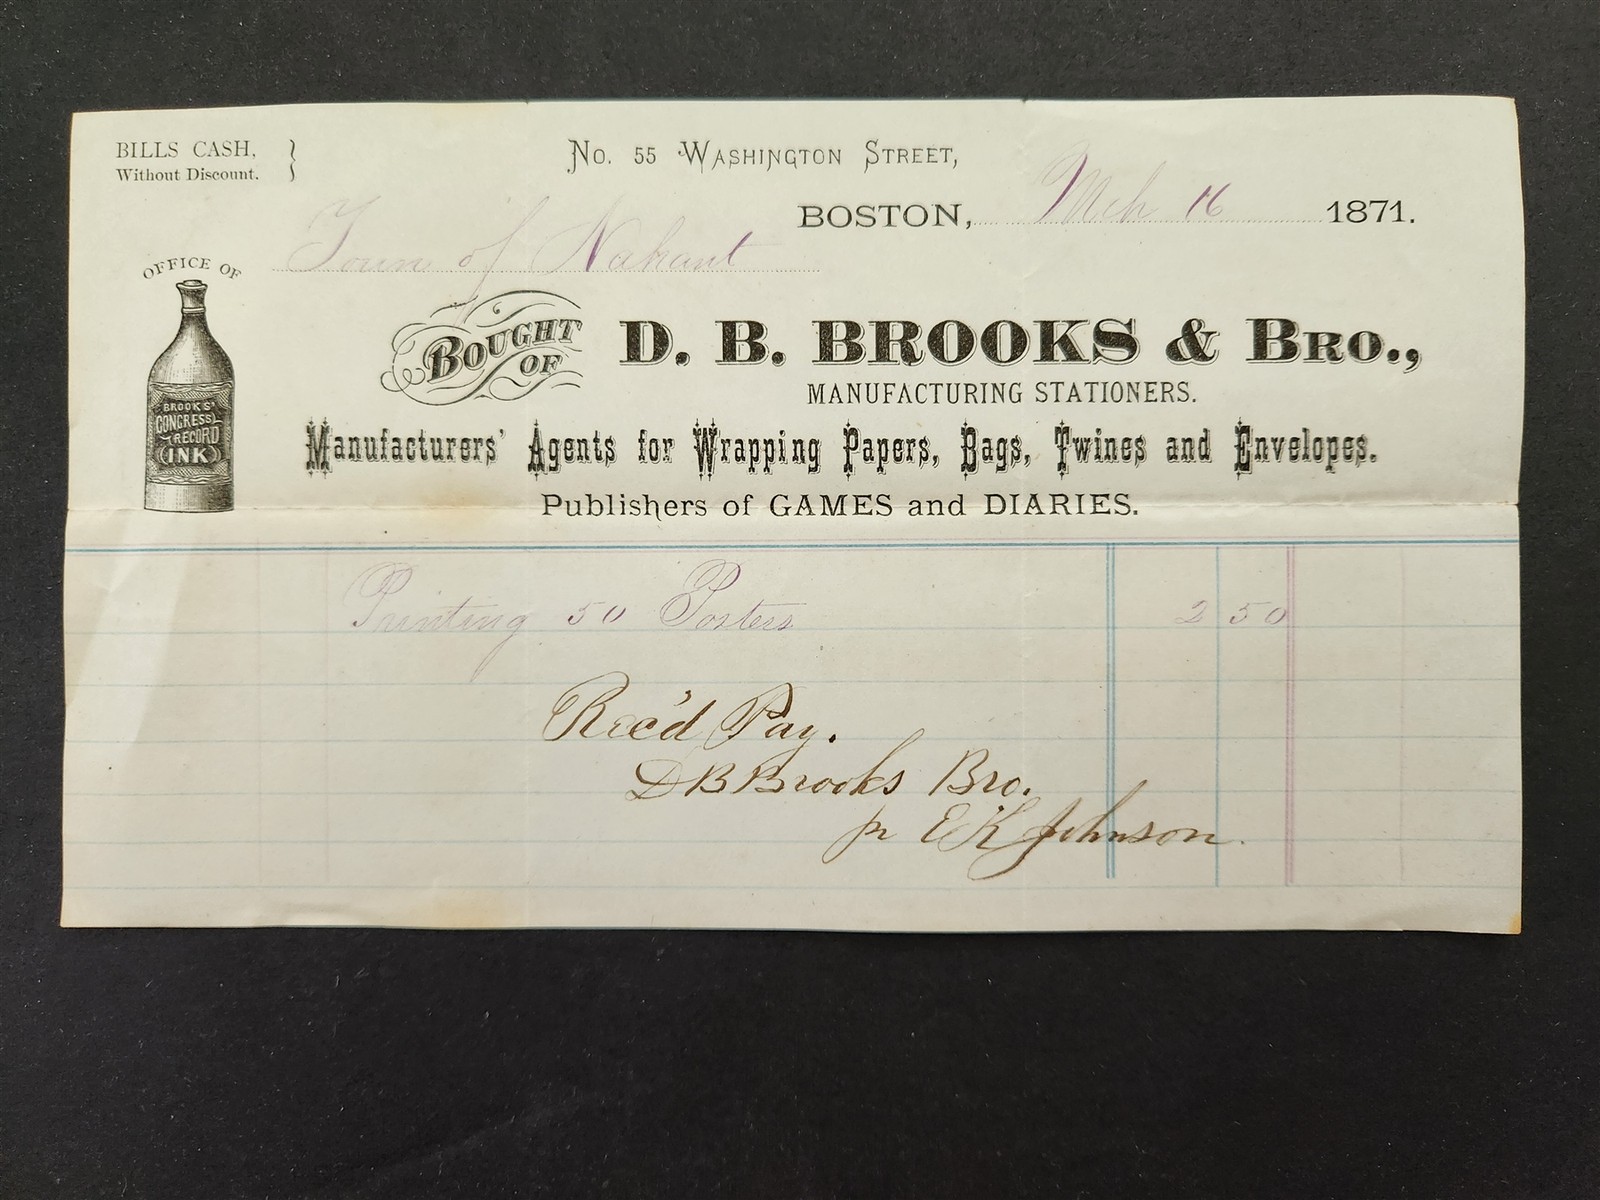 BILLS CASH,
Without Discount.
No. 55 Washington Street,
BOSTON, Mch 16 1871.
Town of Nahant
OFFICE OF
BROOKS'
CONGRESS
RECORD
INK
BOUGHT
OF
D. B. BROOKS & BRO.,
MANUFACTURING STATIONERS.
Manufacturers' Agents for Wrapping Papers, Bags, Twines and Envelopes.
Publishers of GAMES and DIARIES.
Printing 50 Posters 2 50
Rec'd Pay.
D B Brooks Bro.
pr E K Johnson.